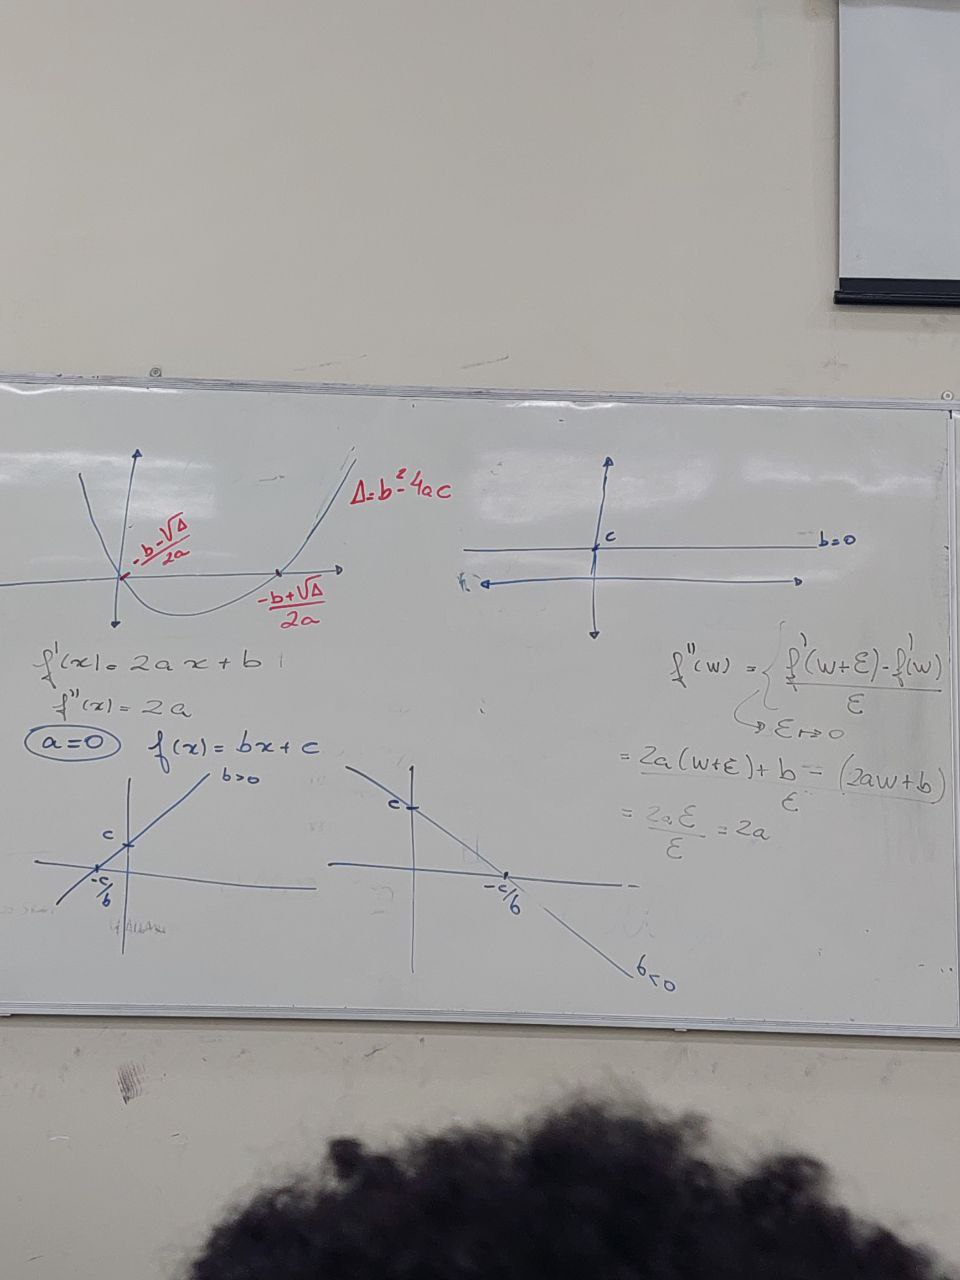 Δ=b²-4ac
-b-√Δ
2a
-b+√Δ
2a
c
b=0
f'(x)=2ax+b
f''(x)=2a
a=0 f(x)=bx+c
b>0
c
-c/b
c
-c/b
b<0
f''(w) = { f'(w+ε)-f'(w)
ε
↳ ε↦0
= 2a(w+ε)+b-(2aw+b)
ε
= 2aε = 2a
ε